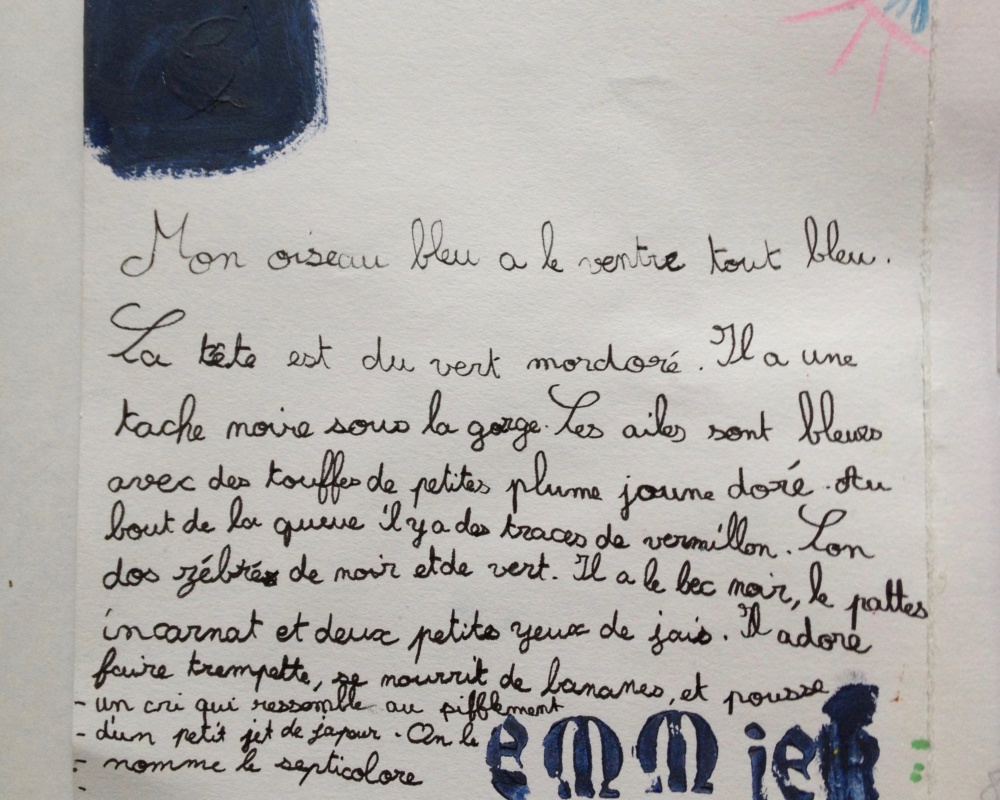 Mon oiseau bleu a le ventre tout bleu.
La tête est du vert mordoré. Il a une
tache noire sous la gorge. Les ailes sont bleues
avec des touffes de petites plume jaune doré. Au
bout de la queue il y a des traces de vermillon. Lon
dos zébré de noir et de vert. Il a le bec noir, le pattes
incarnat et deux petits yeux de jais. Il adore
faire trempette, se nourrit de bananes, et pousse
- un cri qui ressemble au sifflement
- d'un petit jet de vapeur. On le
- nomme le septicolore